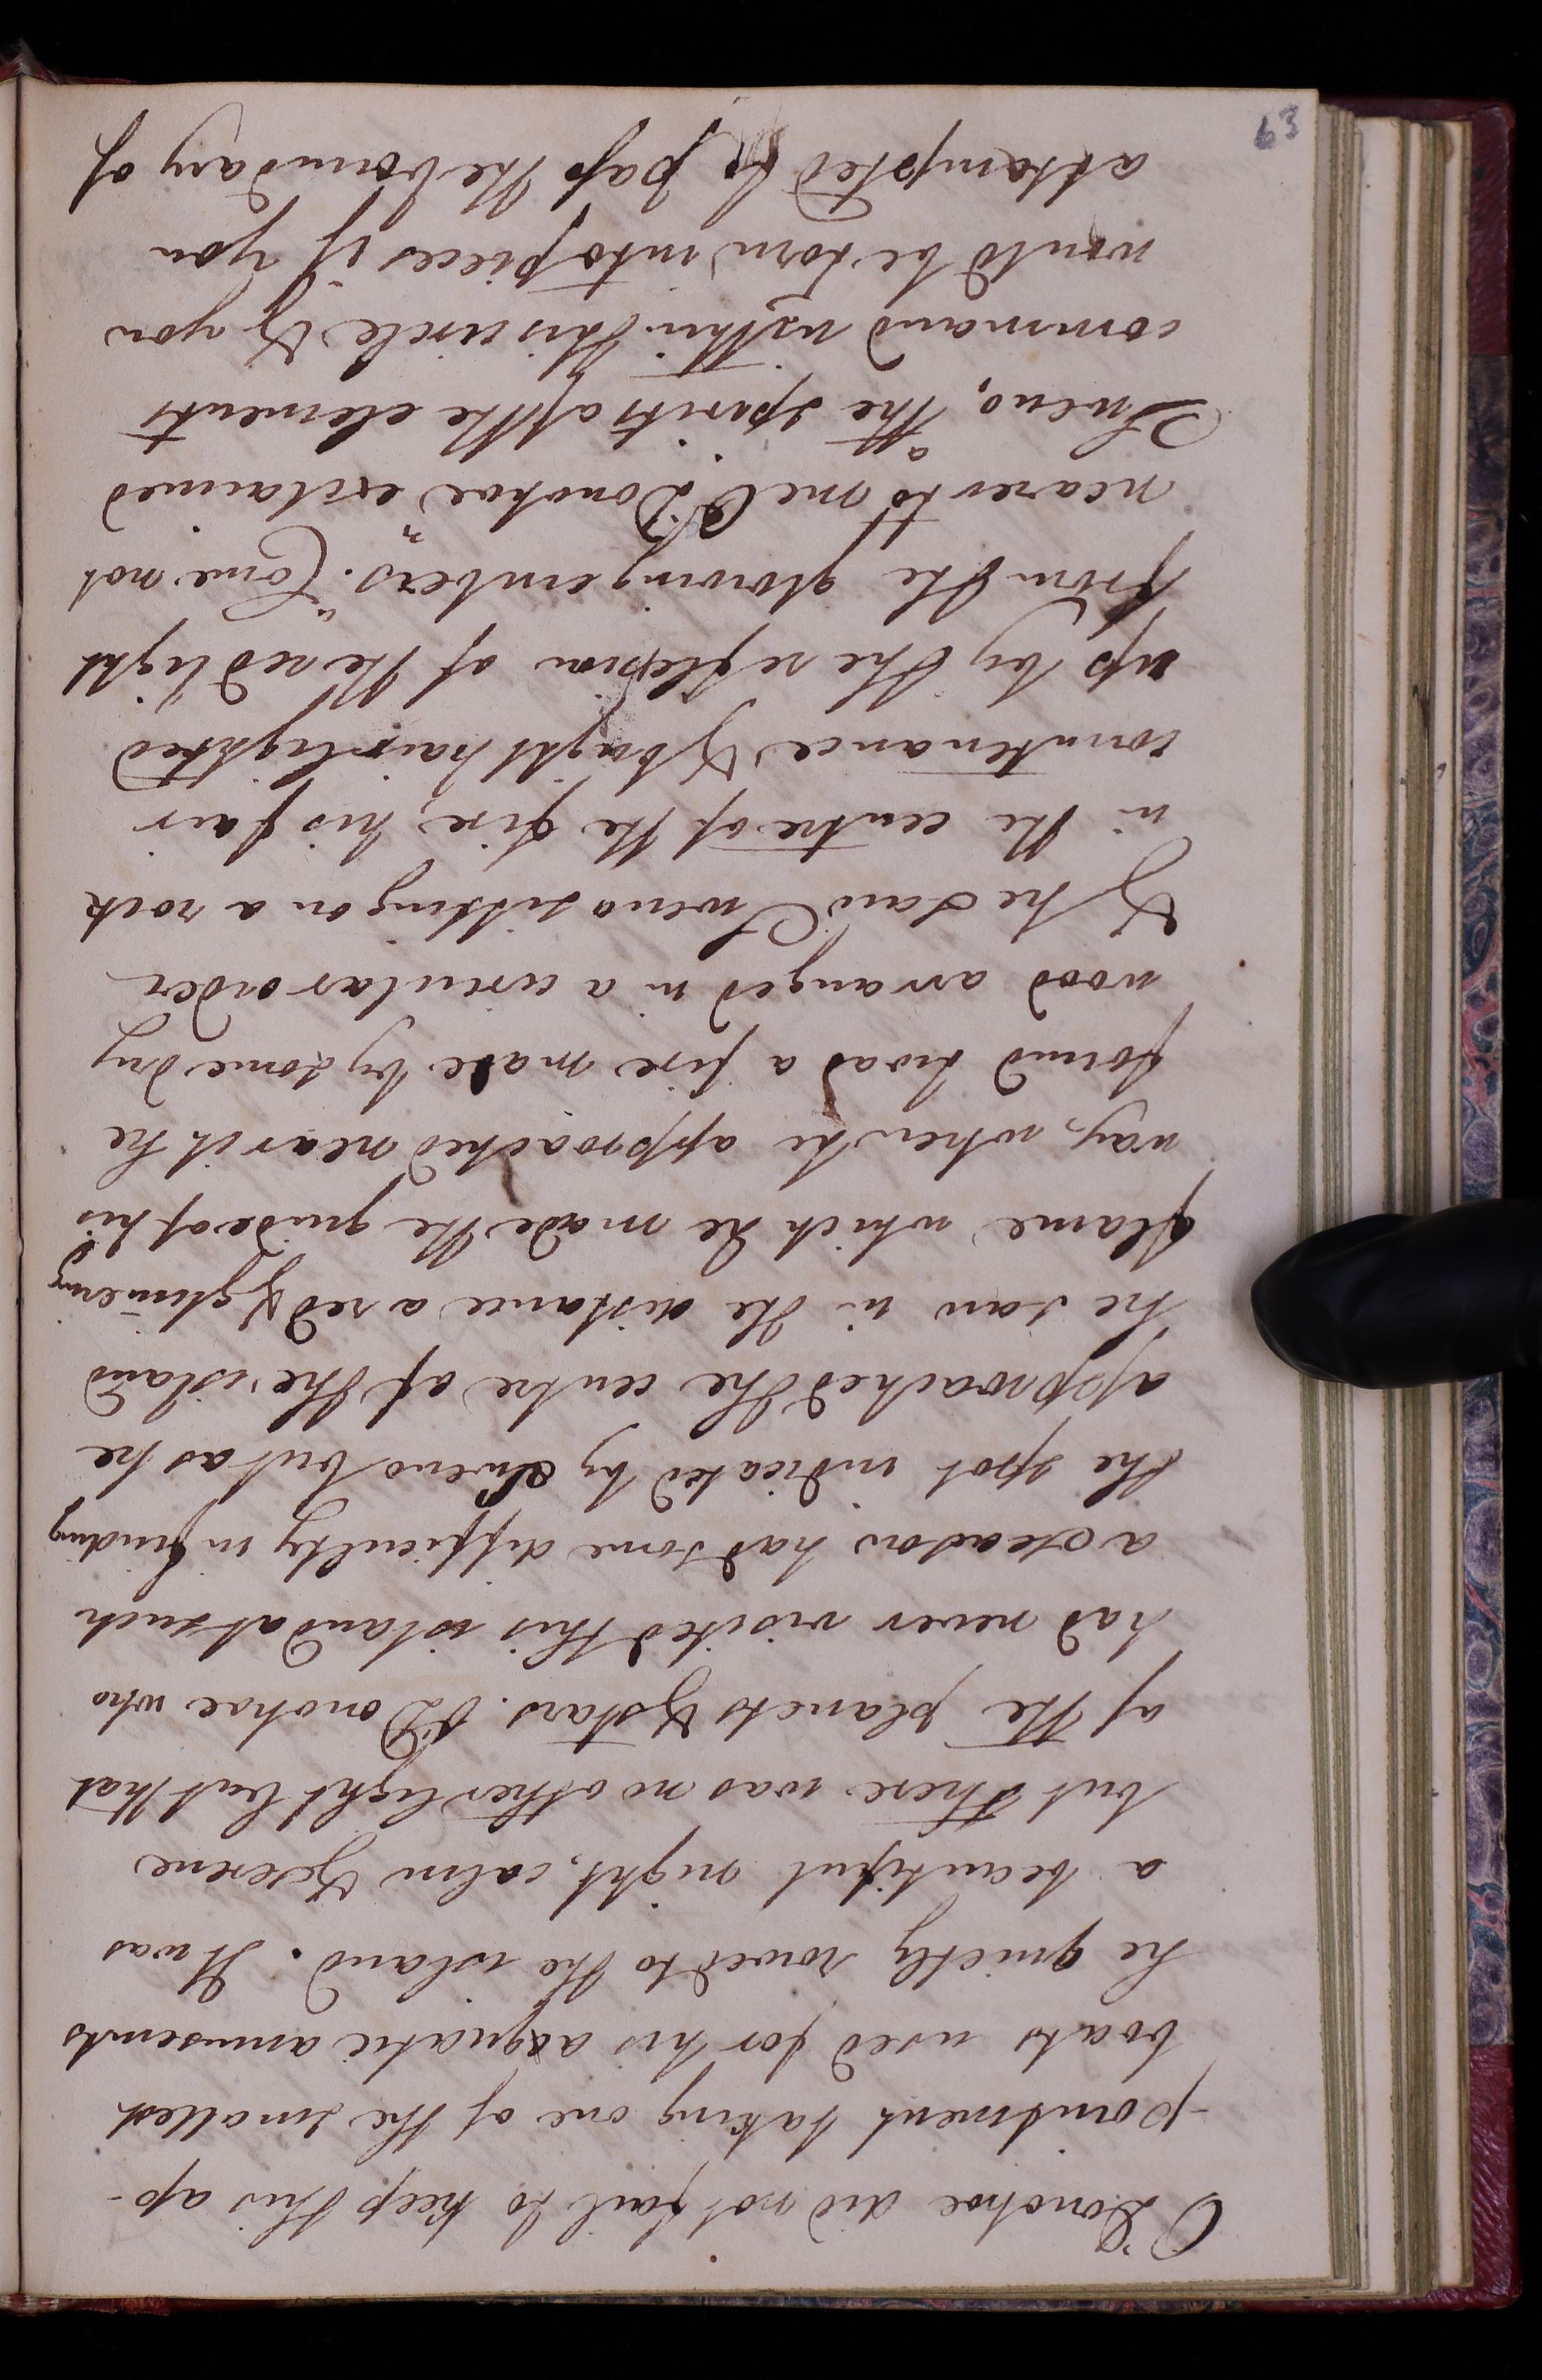 O'Donohoe did not fail to keep this ap-
-pointment taking one of the smallest
boats used for his aquatic amusemts
he quietly rowed to the island. It was
a beautiful night, calm & serene
but there was no other light but that
of the planets & stars. O'Donohoe who
had never visited this island at such
a season had some difficulty in finding
the spot indicated by Sweno but as he
approached the centre of the island
he saw in the distance a red & glimering
flame which he made the guide of his
way, when he approached near it he
found twas a fire made by some dry
wood arranged in a circular order
& he saw Sweno sitting on a rock
in the centre of the fire, his fair
countenance & bright hair lighted
up by the reflexion of the red light
from the glowing embers. "Come not
nearer to me O'Donohoe" exclaimed
Sweno, "the spirits of the elements
command within this circle & you
would be torn into pieces if you
attempted to pass the boundary of
63